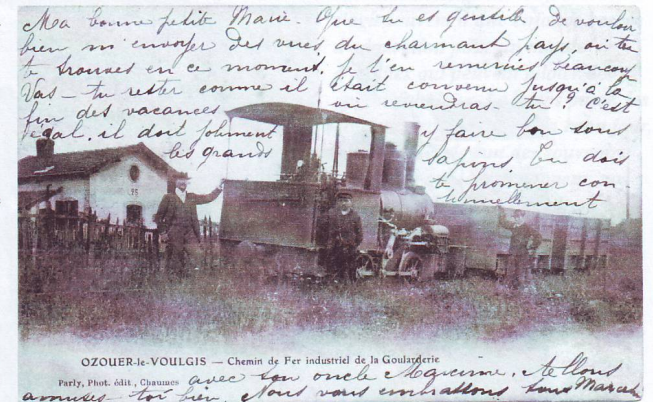 Ma bonne petite Marie. Que tu es gentille de vouloir
bien m'envoyer des vues, du charmant pays, où tu
te trouves en ce moment, je t'en remercies beaucoup
Vas-tu rester comme il était convenu jusqu'à la
fin des vacances reviendras-tu ? C'est
égal, il doit joliment y faire bon sous
les grands sapins. Tu dois
te promener con-
tinuellement
35
OZOUER-le-VOULGIS — Chemin de Fer industriel de la Goularderie
Parly, Phot. édit, Chaumes
avec ton oncle Maxime. Allons
amuses-toi bien. Nous vous embrassons tous